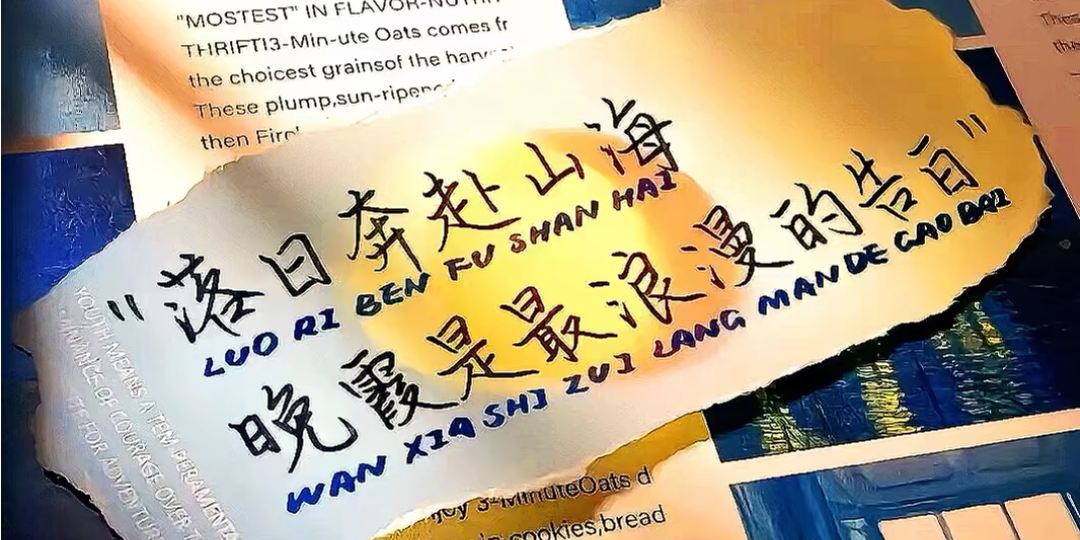 "MOSTEST" IN FLAVOR-NUTRI
THRIFTI3-Min-ute Oats comes fr
the choicest grainsof the harv
These plump,sun-ripene
then Fire
"落日奔赴山海
LUO RI BEN FU SHAN HAI
晚霞是最浪漫的告白"
WAN XIA SHI ZUI LANG MAN DE GAO BAI
YOUTH MEANS A TEM PERAMENTA
OF COURAGE OVER T
FOR ADVENTUR
njoy 3-MinuteOats d
cookies,bread
These